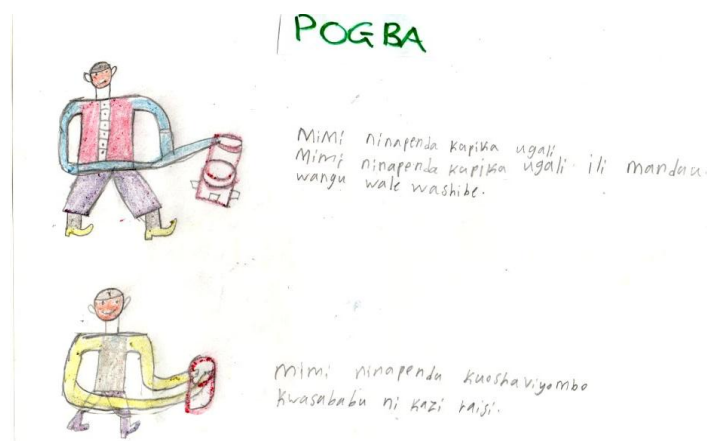 POGBA
Mimi ninapenda kupika ugali
Mimi ninapenda kupika ugali ili mandau
wangu wale washibe.
mimi ninapenda kuosha viyombo
kwasababu ni kazi raisi.